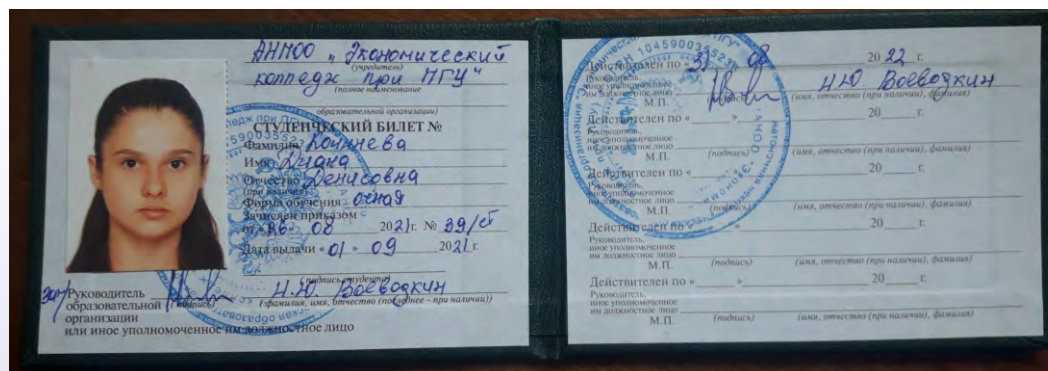 АНПОО „Экономический
(учредитель)
колледж при ПГУ"
(полное наименование
образовательной организации)
СТУДЕНЧЕСКИЙ БИЛЕТ №
Фамилия Кочинева
Имя Диана
Отчество Денисовна
(при наличии)
Форма обучения очная
Зачислен приказом
от « 26 » 08 2021 г. № 39/ст
Дата выдачи « 01 » 09 2021 г.
(подпись студента)
Руководитель Н.Ю. Воеводкин
образовательной (подпись) (фамилия, имя, отчество (последнее - при наличии))
организации
или иное уполномоченное им должностное лицо
Действителен по « 31 » 08 20 22 г.
Руководитель,
иное уполномоченное
им должностное лицо Н.Ю. Воеводкин
М.П. (подпись) (имя, отчество (при наличии), фамилия)
Действителен по « » 20 г.
Руководитель,
иное уполномоченное
им должностное лицо
М.П. (подпись) (имя, отчество (при наличии), фамилия)
Действителен по « » 20 г.
Руководитель,
иное уполномоченное
им должностное лицо
М.П. (подпись) (имя, отчество (при наличии), фамилия)
Действителен по « » 20 г.
Руководитель,
иное уполномоченное
им должностное лицо
М.П. (подпись) (имя, отчество (при наличии), фамилия)
Действителен по « » 20 г.
Руководитель,
иное уполномоченное
им должностное лицо
М.П. (подпись) (имя, отчество (при наличии), фамилия)